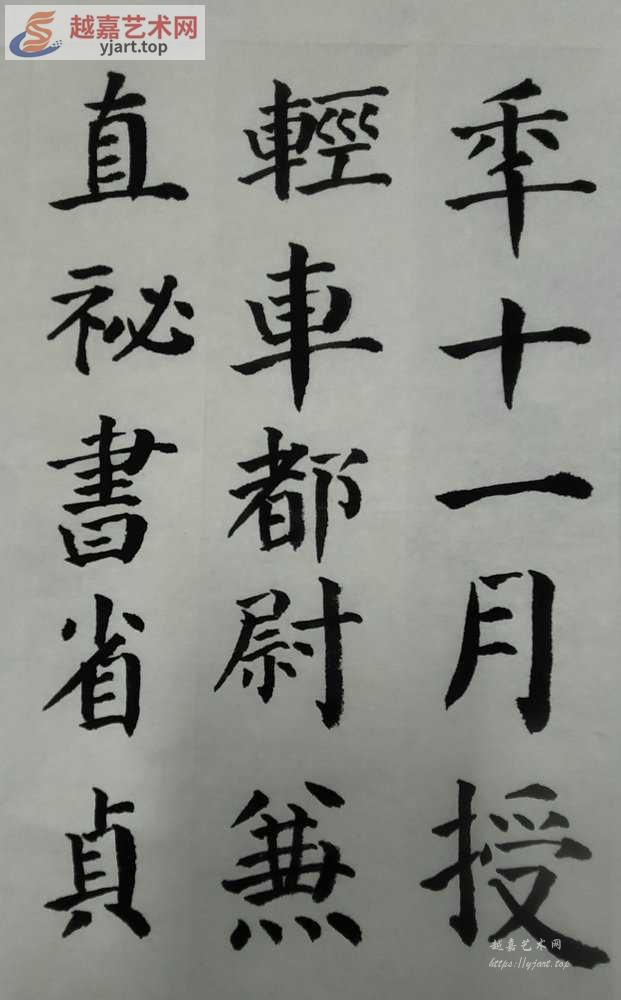 越嘉艺术网
yjart.top
年十一月授
輕車都尉兼
直祕書省貞
越嘉艺术网
https://yjart.top